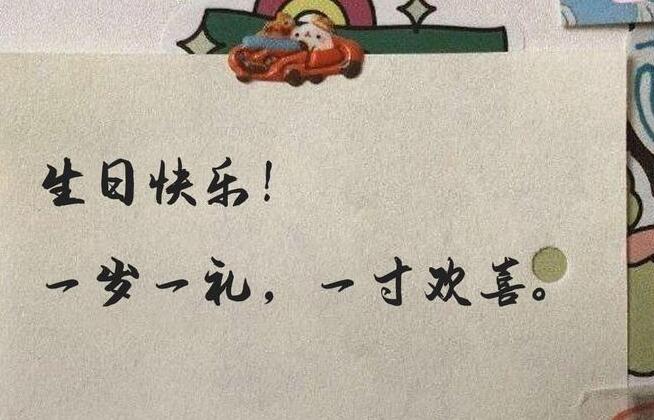 生日快乐！
一岁一礼，一寸欢喜。